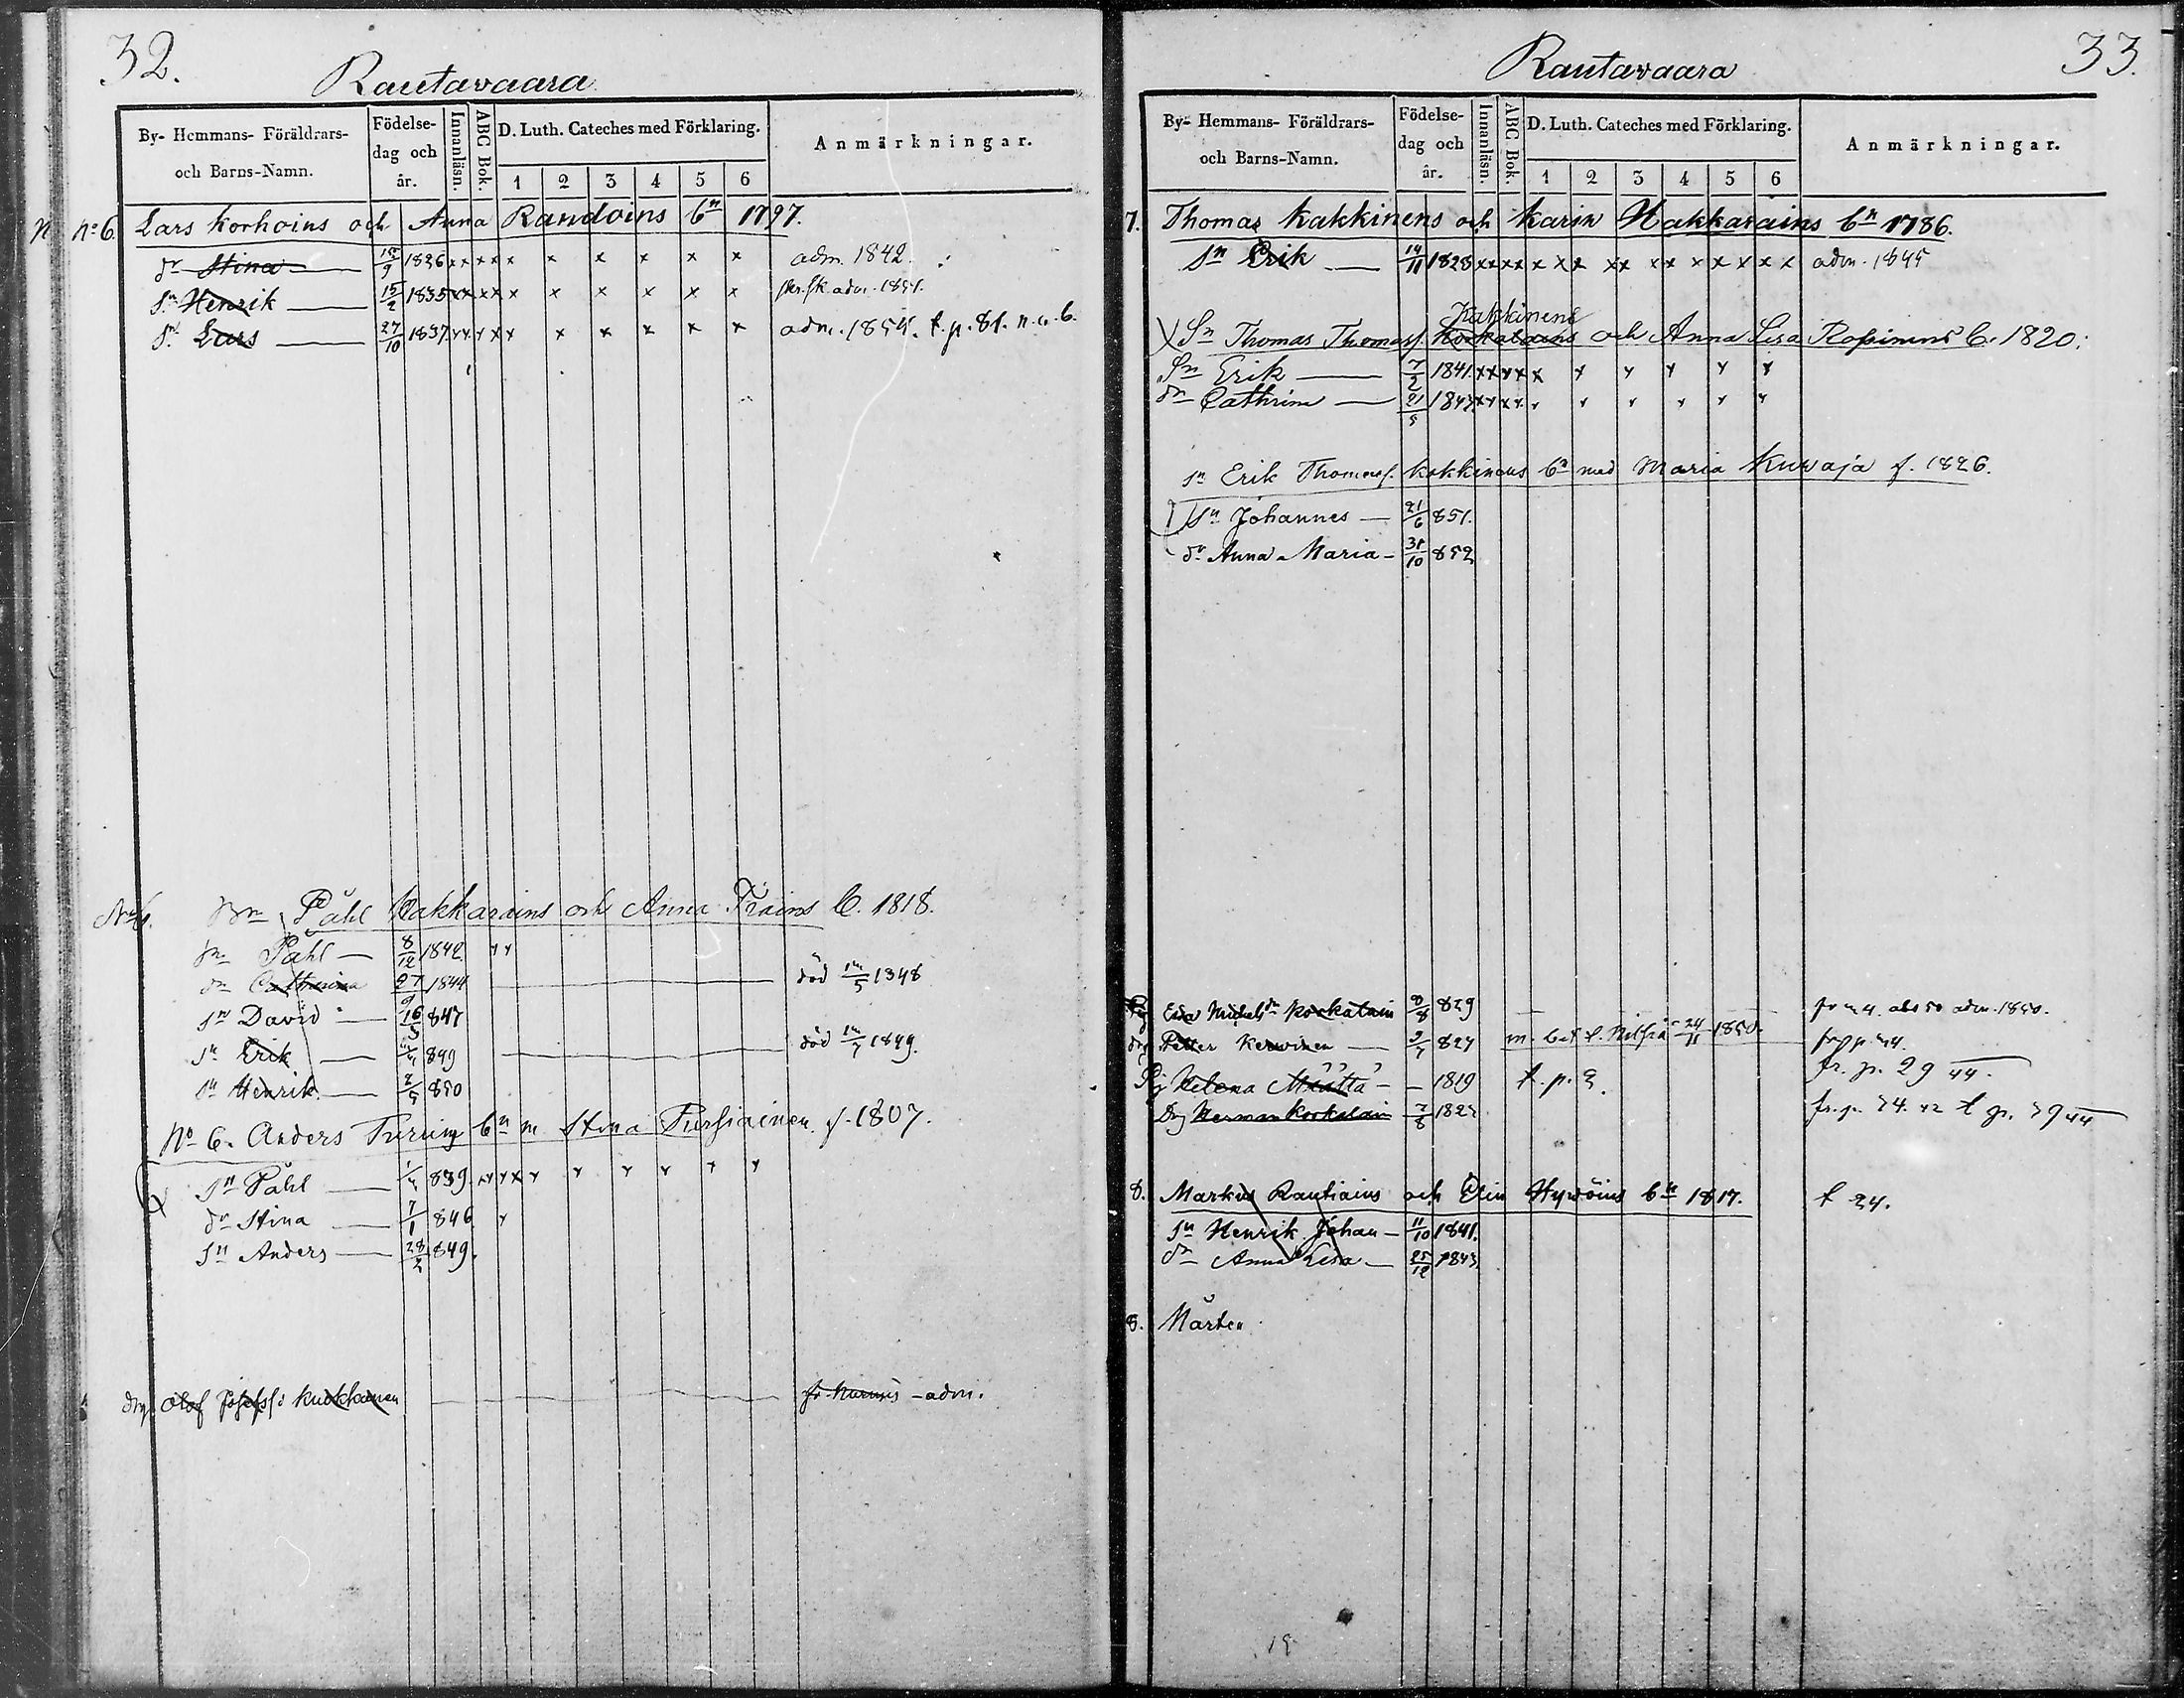 32.
Rautavaara
By- Hemmans- Föräldrars- och Barns-Namn.
Födelse- dag och år.
Innanläsn.
ABC Bok.
D. Luth. Cateches med Förklaring.
1 2 3 4 5 6
Anmärkningar.
No 6. Lars Korhoins och Anna Randoins bn 1797.
dr Stina 12/9 1826 x x x x x x x x x x adm. 1842.
Sn Henrik 15/2 1835 x x x x x x x x x x adm. 1851.
Sn Lars 27/10 1837 x x x x x x x x x x adm. 1854. t. p. 81. n. 6.
No 6. Påhl Hakkarains och Anna b. 1818.
Sn Påhl 8/12 1842
dr Catharina 27/9 1844 död 5 1848
Sn David 16/3 847
Sn Erik 849 död 7 1849.
Sn Henrik 2/5 850
No 6. Anders bn m Stina Pursiainen f. 1807.
Sn Påhl 839.
dr Stina 7/1 846
Sn Anders 28/2 849.
drg Olof Josefss Kukkonen adm.
33.
Rautavaara
By- Hemmans- Föräldrars- och Barns-Namn.
Födelse- dag och år.
Innanläsn.
ABC Bok.
D. Luth. Cateches med Förklaring.
1 2 3 4 5 6
Anmärkningar.
7. Thomas Kakkinens och Karin Hakkarains bn 1786.
Sn Erik 14/11 1828 x x x x x x x x x x x x x x x adm. 1845
Kakkinens
Sn Thomas Thomass. Korkalains och Anna Lisa b. 1820.
Sn Erik 7/2 1841 x x x x x x x x x x
dr Cathrine 21/5 1843 x x x x x x x x x x
sn Erik Thomass. Kakkinens bn med Maria Kuwaja f. 1826.
Sn Johannes 21/6 851.
dr Anna Maria 31/10 852
Pig Eva Michelsdr Korkalain 8/8 829 adm. 1850.
drg Petter Kerwinen 827 m. bet. t. Nilsiä 24/11 1850.
Pig Helena Määttä 1819 t. p. fr. p. 29 44.
drg Herman Korkalain 7/8 182 fr. p. 34. 42 t p. 39 44
8. Markus Rautiains och Elin Hywöins bn 1817. t 34.
Sn Henrik Johan 11/10 1841.
dr Anna Lisa 25/12 1843
8. Mårten